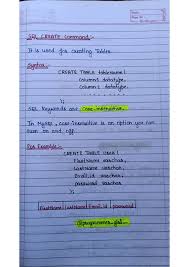 SQL CREATE Command:-
It is used for creating Tables.
Syntax:-
CREATE TABLE tablename(
Column1 datatype,
Column2 datatype,
Column3 datatype,
);
SQL Keywords are case-insensitive.
In MySQL, case-insensitive is an option you can
turn on and off.
For Example:-
CREATE TABLE User(
FirstName varchar,
LastName varchar,
Email_id varchar,
password varchar
);
FirstName LastName Email_id password
@programmer_girl